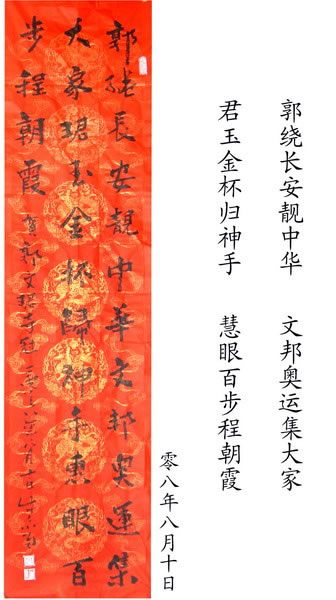 郭绕長安靓中華文邦奥運集
大家珺玉金杯歸神手惠眼百
步程朝霞 賀郭文珺夺冠
郭绕长安靓中华 文邦奥运集大家
君玉金杯归神手 慧眼百步程朝霞
零八年八月十日